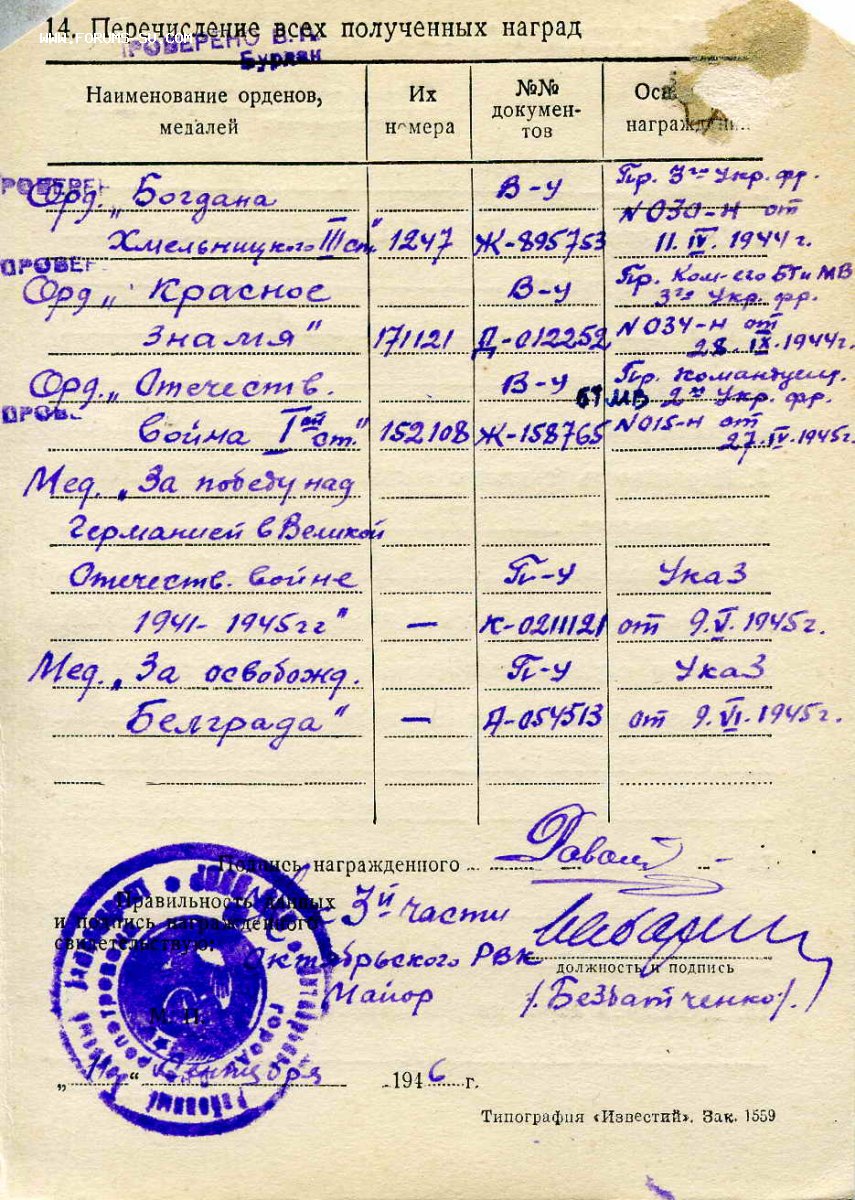 14. Перечисление всех полученных наград
WWW.FORUMS-SU.COM
ПРОВЕРЕНО
Бурлан
Наименование орденов, медалей
Их номера
№№ документов
награждени
ПРОВЕРЕН
Орд. „Богдана В-У Пр. 3го Укр. фр.
Хмельницкого III ст." 1247 Ж-895753 N030-Н от 11.IV.1944г.
ПРОВЕР
Орд „Красное В-У Пр. Ком-его БТ и МВ 3го Укр. фр.
Знамя" 171121 Д-012252 N034-Н от 28.IX.1944г.
Орд „Отечеств. В-У Пр. Командущ. БТ МВ 2го Укр. фр.
ПРОВ
война Iой ст." 152108 Ж-158765 N015-Н от 27.IV.1945г.
Мед. „За победу над
Германией в Великой
Отечеств. войне П-У Указ
1941-1945гг" — К-0211121 от 9.V.1945г.
Мед. „За освобожд. П-У Указ
Белграда" — А-054513 от 9.VI.1945г.
Подпись награжденного
Правильность данных
и подпись награжденного
свидетельствую:
3й части
Октябрьского РВК
должность и подпись
Майор /Безбатченко/.
М. П.
Сентября 1946 г.
Типография «Известий». Зак. 1559